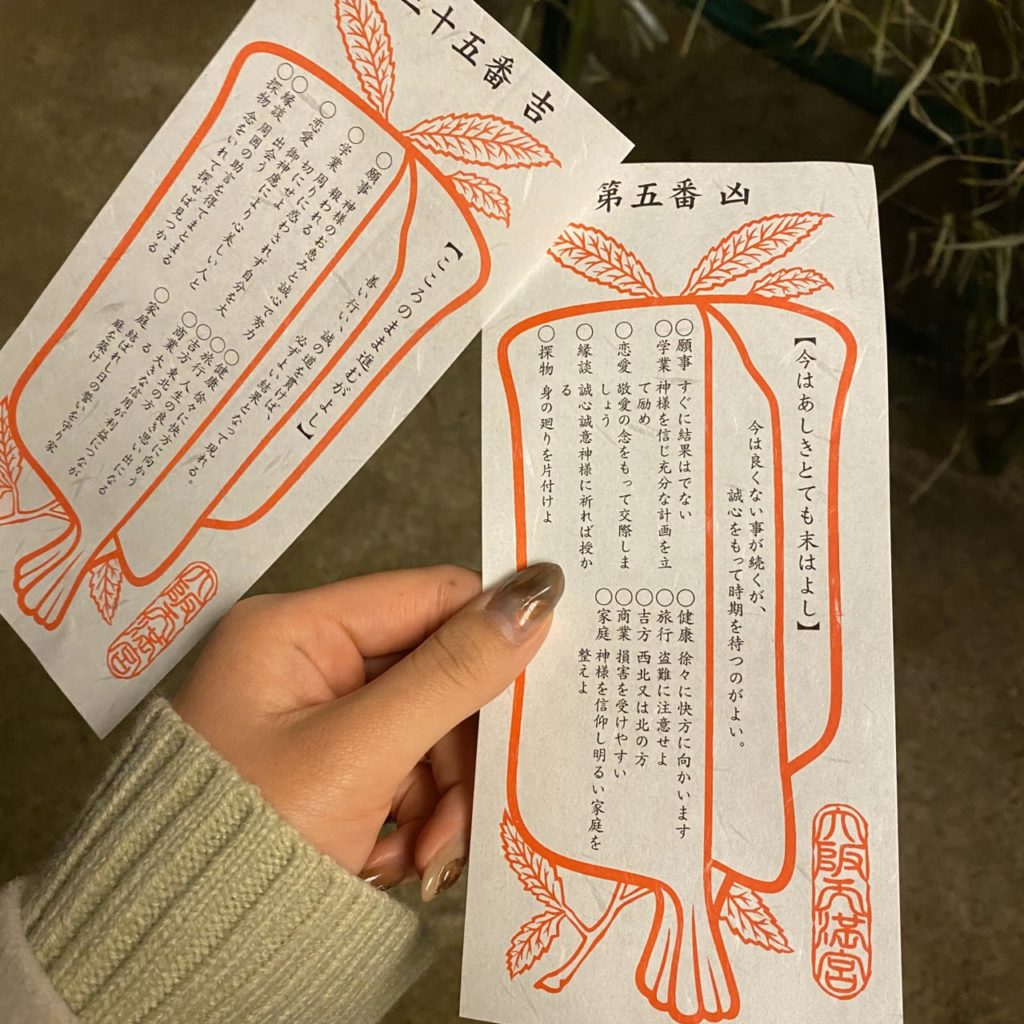 十五番 吉
【こころのまま進むがよし】
善い行い、誠の道を貫けば、
必ずよい結果となって現れる。
○願事 神様のお恵みと誠心で努力
○学業 報われる
○恋愛 周りに惑わされず自分を大
切にせよ
○縁談 御神慮により心美しい人と
出会う
○探物 周囲の助言を得てまとまる
念をいれて探せば見つかる
○健康 徐々に快方に向かう
○旅行 人生の良き思い出になる
○吉方 東北の方
○商業 大きな信用が利益につなが
る
○家庭 結ばれし日の誓いを守り家
庭を築け
大阪天満宮
第五番 凶
【今はあしきとても末はよし】
今は良くない事が続くが、
誠心をもって時期を待つのがよい。
○願事 すぐに結果はでない
○学業 神様を信じ充分な計画を立
て励め
○恋愛 敬愛の念をもって交際しま
しょう
○縁談 誠心誠意神様に祈れば授か
る
○探物 身の廻りを片付けよ
○健康 徐々に快方に向かいます
○旅行 盗難に注意せよ
○吉方 西北又は北の方
○商業 損害を受けやすい
○家庭 神様を信仰し明るい家庭を
整えよ
大阪天満宮